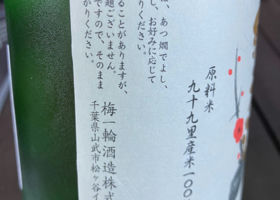 原料米
九十九里産米一〇〇
、あつ燗でよし、
し、お好みに応じて
りください。
ることがありますが、
題ございません。
ですので、そのまま
がりください。
梅一輪酒造株式
千葉県山武市松ヶ谷イ